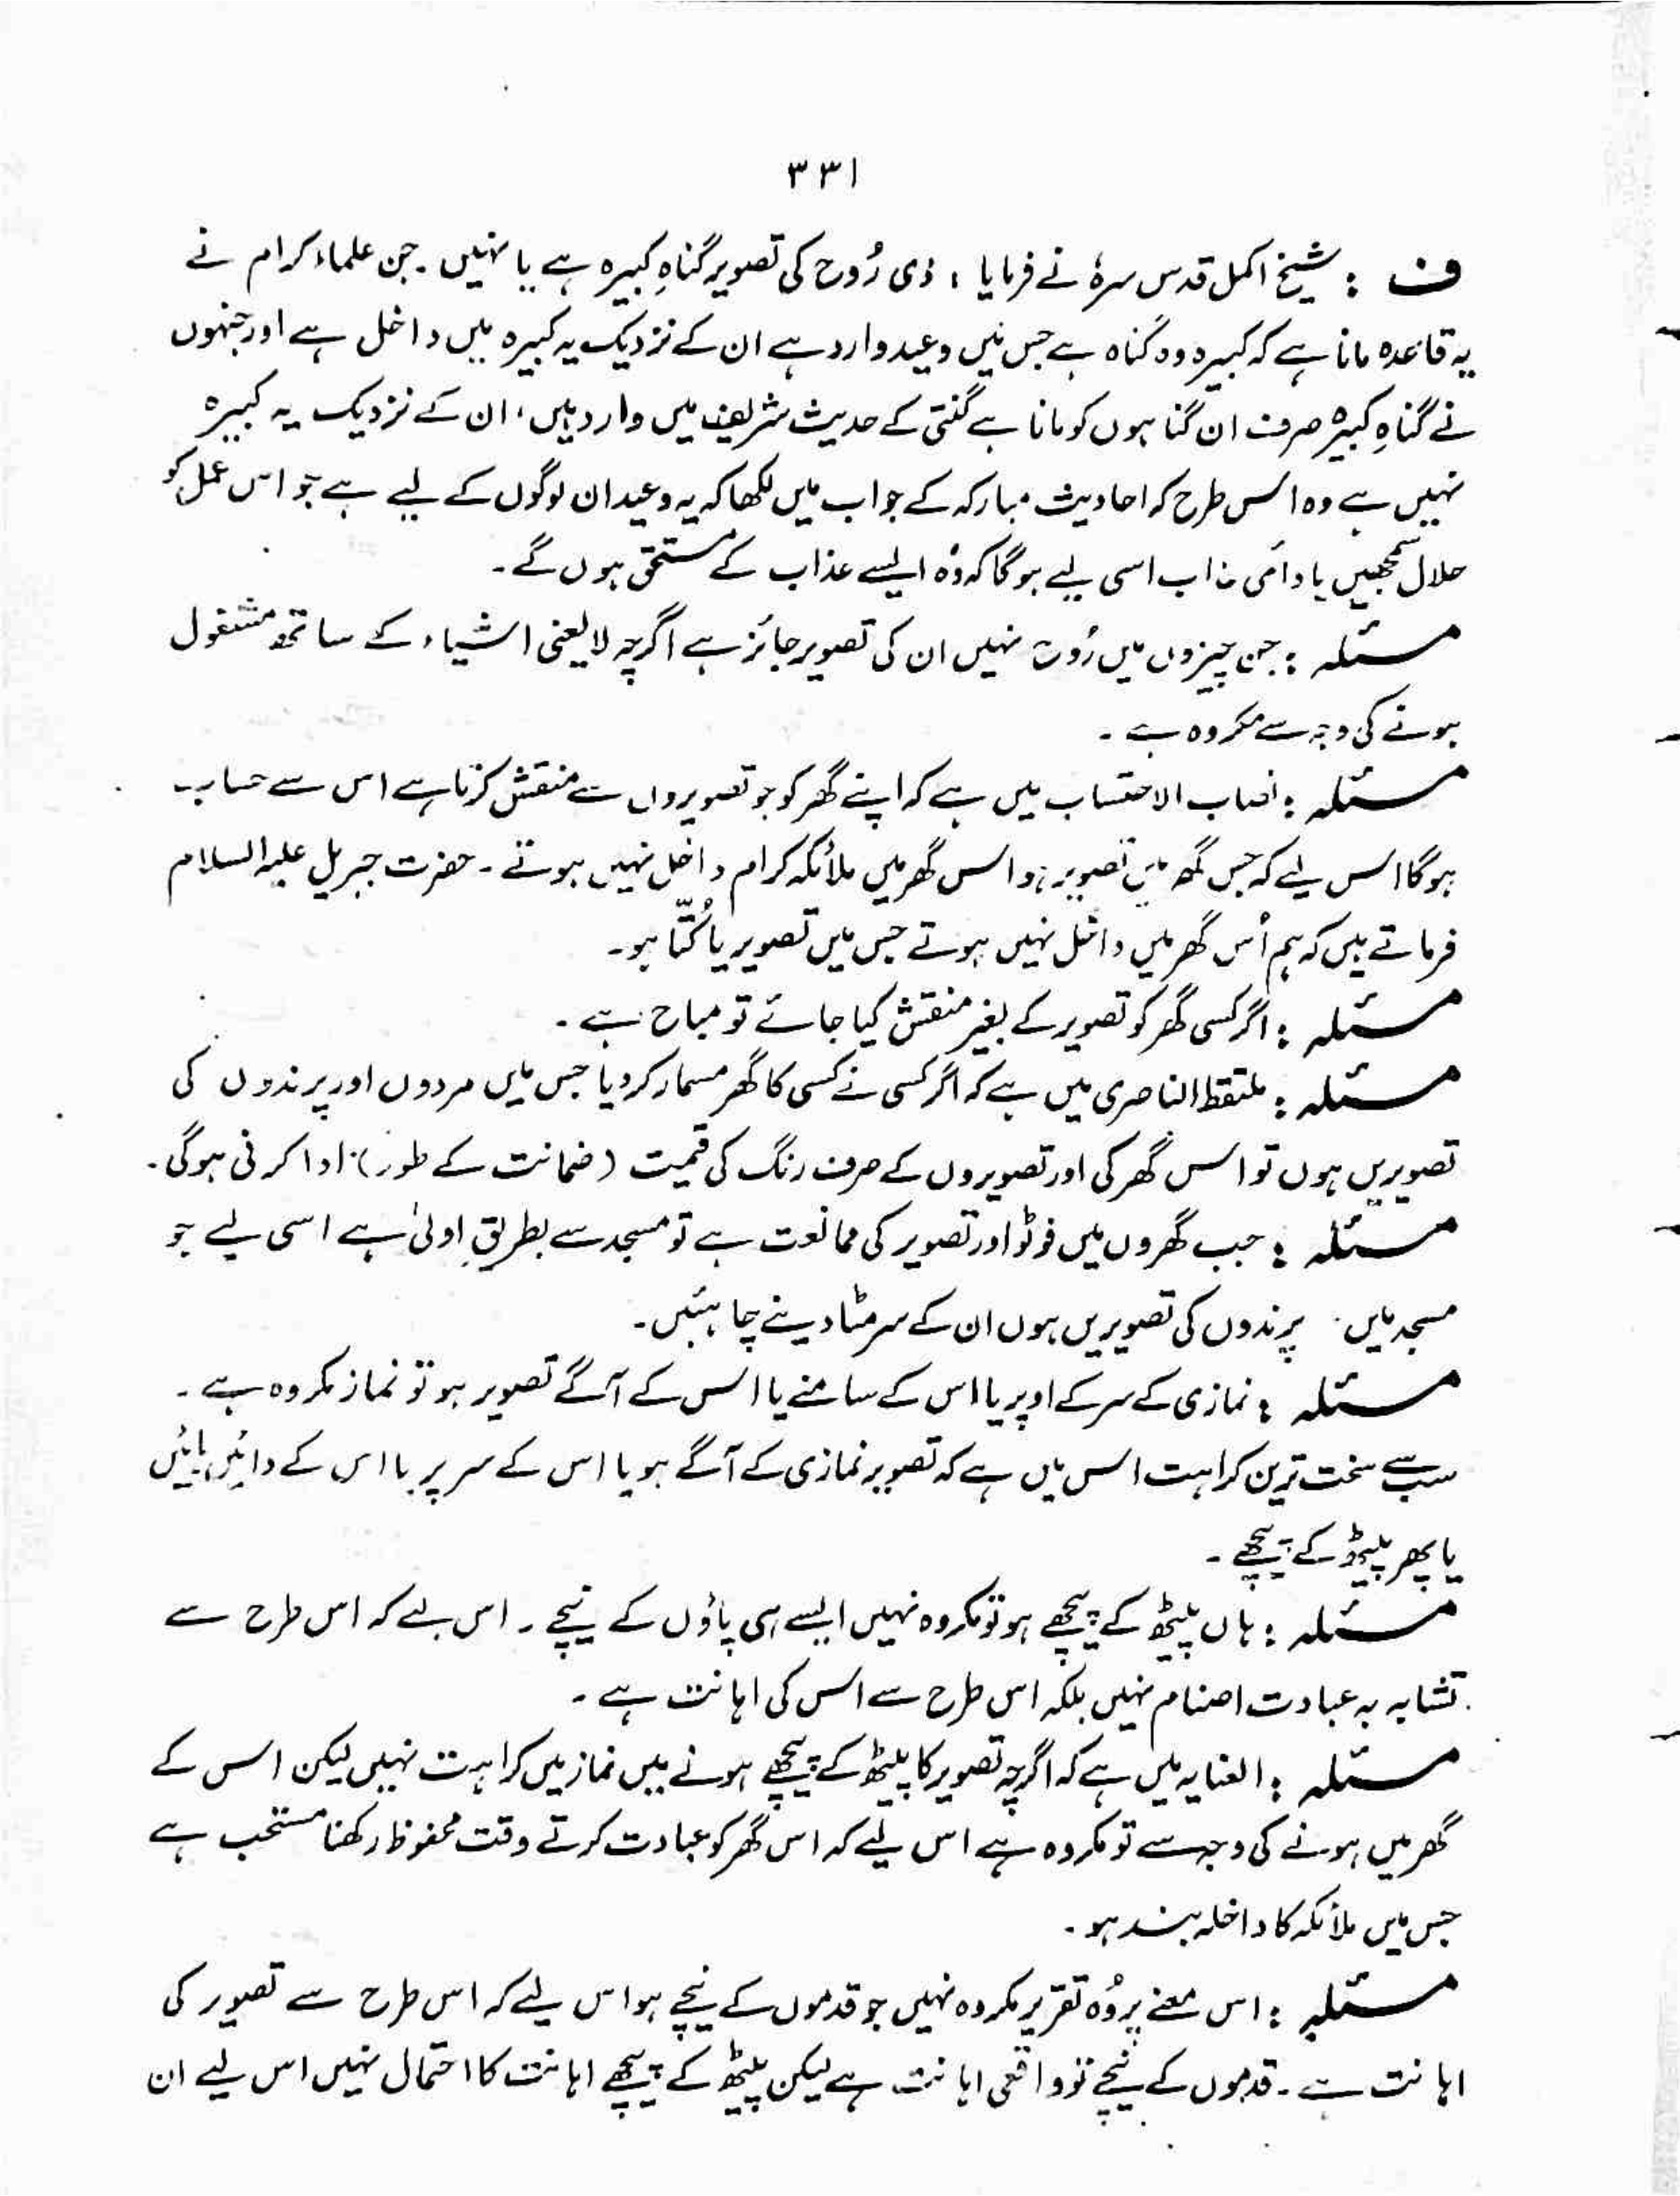 ۳۳۱
ف : شیخ اکمل قدس سرہٗ نے فرمایا ، ذی رُوح کی تصویر گناہِ کبیرہ ہے یا نہیں ۔ جن علماء کرام نے
یہ قاعدہ مانا ہے کہ کبیرہ وہ گناہ ہے جس میں وعید وارد ہے ان کے نزدیک یہ کبیرہ میں داخل ہے اور جنہوں
نے گناہِ کبیرہ صرف ان گناہوں کو مانا ہے گنتی کے حدیث شریف میں وارد ہیں ، ان کے نزدیک یہ کبیرہ
نہیں ہے وہ اس طرح کہ احادیث مبارکہ کے جواب میں لکھا کہ یہ وعید ان لوگوں کے لیے ہے جو اس عمل کو
حلال سمجھیں یا دائمی عذاب اسی لیے ہوگا کہ وُہ ایسے عذاب کے مستحق ہوں گے ۔
مسئلہ : جن چیزوں میں رُوح نہیں ان کی تصویر جائز ہے اگرچہ لایعنی اشیاء کے ساتھ مشغول
ہونے کی وجہ سے مکروہ ہے ۔
مسئلہ : نصاب الاحتساب میں ہے کہ اپنے گھر کو جو تصویروں سے منقش کرتا ہے اس سے حساب
ہوگا اس لیے کہ جس گھر میں تصویر ہو اس گھر میں ملائکہ کرام داخل نہیں ہوتے ۔ حضرت جبریل علیہ السلام
فرماتے ہیں کہ ہم اُس گھر میں داخل نہیں ہوتے جس میں تصویر یا کُتّا ہو ۔
مسئلہ : اگر کسی گھر کو تصویر کے بغیر منقش کیا جائے تو مباح ہے ۔
مسئلہ : ملتقط الناصری میں ہے کہ اگر کسی نے کسی کا گھر مسمار کر دیا جس میں مردوں اور پرندوں کی
تصویریں ہوں تو اس گھر کی اور تصویروں کے صرف رنگ کی قیمت ( ضمانت کے طور ) ادا کرنی ہوگی ۔
مسئلہ : جب گھروں میں فوٹو اور تصویر کی ممانعت ہے تو مسجد سے بطریقِ اولیٰ ہے اسی لیے جو
مسجد میں پرندوں کی تصویریں ہوں ان کے سر مٹا دینے چاہئیں ۔
مسئلہ : نمازی کے سر کے اوپر یا اس کے سامنے یا اس کے آگے تصویر ہو تو نماز مکروہ ہے ۔
سب سے سخت ترین کراہت اس میں ہے کہ تصویر نمازی کے آگے ہو یا اس کے سر پر یا اس کے دائیں بائیں
یا پھر پیٹھ کے پیچھے ۔
مسئلہ : ہاں پیٹھ کے پیچھے ہو تو مکروہ نہیں ایسے ہی پاؤں کے نیچے ۔ اس لئے کہ اس طرح سے
تشابہ بہ عبادت اصنام نہیں بلکہ اس طرح سے اس کی اہانت ہے ۔
مسئلہ : العنایہ میں ہے کہ اگرچہ تصویر کا پیٹھ کے پیچھے ہونے میں نماز میں کراہت نہیں لیکن اس کے
گھر میں ہونے کی وجہ سے تو مکروہ ہے اس لیے کہ اس گھر کو عبادت کرتے وقت محفوظ رکھنا مستحب ہے
جس میں ملائکہ کا داخلہ بند ہو ۔
مسئلہ : اس معنے پر وُہ تقریر مکروہ نہیں جو قدموں کے نیچے ہو اس لیے کہ اس طرح سے تصویر کی
اہانت ہے ۔ قدموں کے نیچے تو واقعی اہانت ہے لیکن پیٹھ کے پیچھے اہانت کا احتمال نہیں اس لیے ان